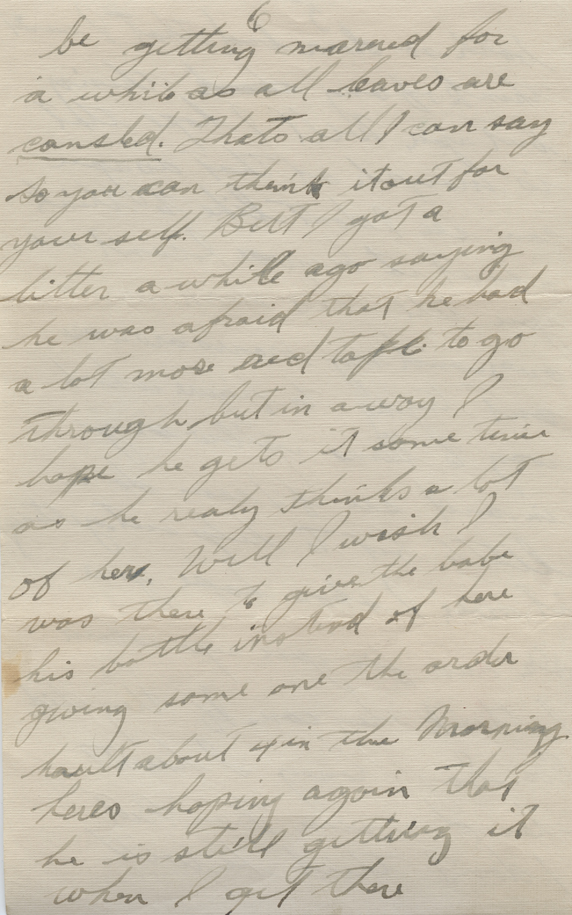 6
be getting marred for
a while as all leaves are
cansled. Thats all I can say
so you can think it out for
your self. But I got a
litter a while ago saying
he was afraid that he had
a lot more red tape to go
through, but in a way I
hope he gets it some time
as he realy thinks a lot
of her. Well I wish I
was there to give the babe
his bottle instead of here
giving some one the order
hault about 4 in the Morning
heres hoping again that
he is still getting it
when I get there